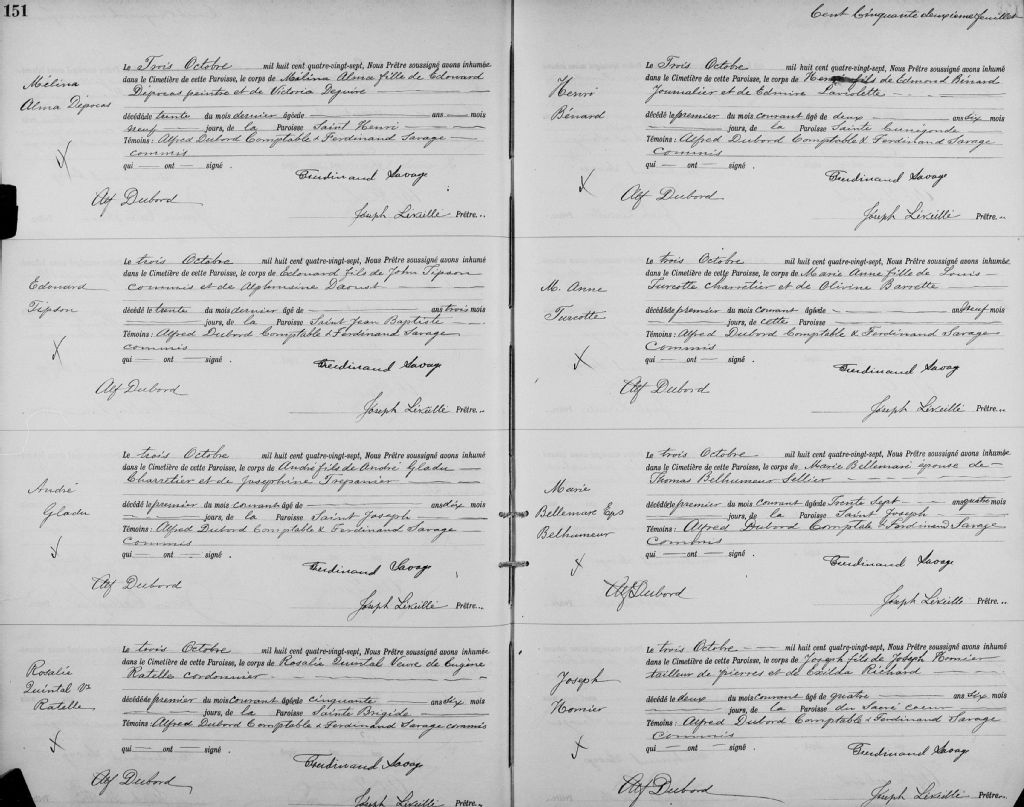 151
Mélina
Alma Dépocas
Le Trois Octobre mil huit cent quatre-vingt-sept, Nous Prêtre soussigné avons inhumé
dans le Cimetière de cette Paroisse, le corps de Mélina Alma fille de Edouard
Dépocas peintre et de Victoria
décédé le trente du mois dernier âgé de — ans — mois
neuf — jours, de la Paroisse Saint Henri
Témoins : Alfred Dubord Comptable & Ferdinand Savage
commis
qui — ont — signé .
Ferdinand Savage
Alf Dubord
Joseph Léveillé Prêtre..
Edouard
Tipson
Le trois Octobre mil huit cent quatre-vingt-sept, Nous Prêtre soussigné avons inhumé
dans le Cimetière de cette Paroisse, le corps de Edouard fils de John Tipson
commis et de Alphonsine Daoust
décédé le trente du mois dernier âgé de — ans trois mois
— jours, de la Paroisse Saint Jean Baptiste
Témoins : Alfred Dubord Comptable & Ferdinand Savage
commis
qui — ont — signé .
Ferdinand Savage
Alf Dubord
Joseph Léveillé Prêtre..
André
Gladu
Le trois Octobre mil huit cent quatre-vingt-sept, Nous Prêtre soussigné avons inhumé
dans le Cimetière de cette Paroisse, le corps de André fils de André Gladu
Charretier et de Josephine Trepanier
décédé le premier du mois courant âgé de — ans dix mois
— jours, de la Paroisse Saint Joseph
Témoins : Alfred Dubord Comptable & Ferdinand Savage
Commis
qui — ont — signé .
Ferdinand Savage
Alf Dubord
Joseph Léveillé Prêtre..
Rosalie
Quintal Vve
Ratelle
Le trois Octobre mil huit cent quatre-vingt-sept, Nous Prêtre soussigné avons inhumé
dans le Cimetière de cette Paroisse, le corps de Rosalie Quintal Veuve de Eugène
Ratelle cordonnier
décédé de premier du mois courant âgé de cinquante ans six mois
— jours, de la Paroisse Sainte Brigide
Témoins : Alfred Dubord Comptable & Ferdinand Savage commis
qui — ont — signé .
Ferdinand Savage
Alf Dubord
Joseph Léveillé Prêtre..
Cent Cinquante deuxieme feuillet
Henri
Bénard
Le Trois Octobre mil huit cent quatre-vingt-sept, Nous Prêtre soussigné avons inhumé
dans le Cimetière de cette Paroisse, le corps de Henri fils de Edmond Bénard
Journalier et de Edmire Laviolette
décédé le premier du mois courant âgé de deux — ans six mois
— jours, de la Paroisse Sainte Cunégonde
Témoins : Alfred Dubord Comptable & Ferdinand Savage
Commis
qui — ont — signé .
Ferdinand Savage
Alf Dubord
Joseph Léveillé Prêtre..
M. Anne
Turcotte
Le trois Octobre mil huit cent quatre-vingt-sept, Nous Prêtre soussigné avons inhumé
dans le Cimetière de cette Paroisse, le corps de Marie Anne fille de Louis
Turcotte Charretier et de Olivine Barrette
décédé le premier du mois courant âgé de — ans neuf mois
— jours, de cette Paroisse
Témoins : Alfred Dubord Comptable & Ferdinand Savage
Commis
qui — ont — signé .
Ferdinand Savage
Alf Dubord
Joseph Léveillé Prêtre..
Marie
Bellemare Eps
Belhumeur
Le trois Octobre mil huit cent quatre-vingt-sept, Nous Prêtre soussigné avons inhumé
dans le Cimetière de cette Paroisse, le corps de Marie Bellemare épouse de
Thomas Belhumeur Sellier
décédé le premier du mois courant âgé de Trente Sept — ans quatre mois
— jours, de la Paroisse Saint Joseph
Témoins : Alfred Dubord Comptable & Ferdinand Savage
Commis
qui — ont — signé .
Ferdinand Savage
Alf Dubord
Joseph Léveillé Prêtre..
Joseph
Homier
Le trois Octobre mil huit cent quatre-vingt-sept, Nous Prêtre soussigné avons inhumé
dans le Cimetière de cette Paroisse, le corps de Joseph fils de Joseph Homier
tailleur de pierres et de Exilda Richard
décédé le deux du mois courant âgé de quatre — ans six mois
— jours, de la Paroisse du Sacré coeur
Témoins : Alfred Dubord Comptable & Ferdinand Savage
Commis
qui — ont — signé .
Ferdinand Savage
Alf Dubord
Joseph Léveillé Prêtre..